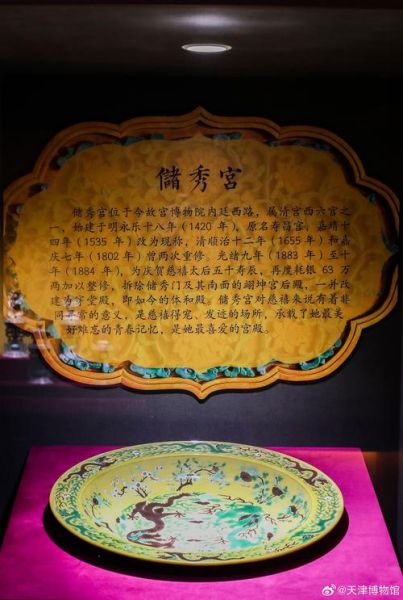 儲秀宮
储秀宫位于今故宫博物院内廷西路，属清宫西六宫之
一，始建于明永乐十八年（1420 年），原名寿昌宫，嘉靖十
四年（1535 年）改为现称，清顺治十二年（1655 年）和嘉
庆七年（1802 年）曾两次重修。光绪九年（1883 年）至十
年（1884 年），为庆贺慈禧太后五十寿辰，再度耗银 63 万
两加以整修，拆除储秀门及其南面的翊坤宫后殿，一并改
建为穿堂殿，即如今的体和殿。储秀宫对慈禧来说有着非
同寻常的意义，是慈禧得宠、发迹的场所，承载了她最美
好难忘的青春记忆，是她最喜爱的宫殿。
@天津博物馆